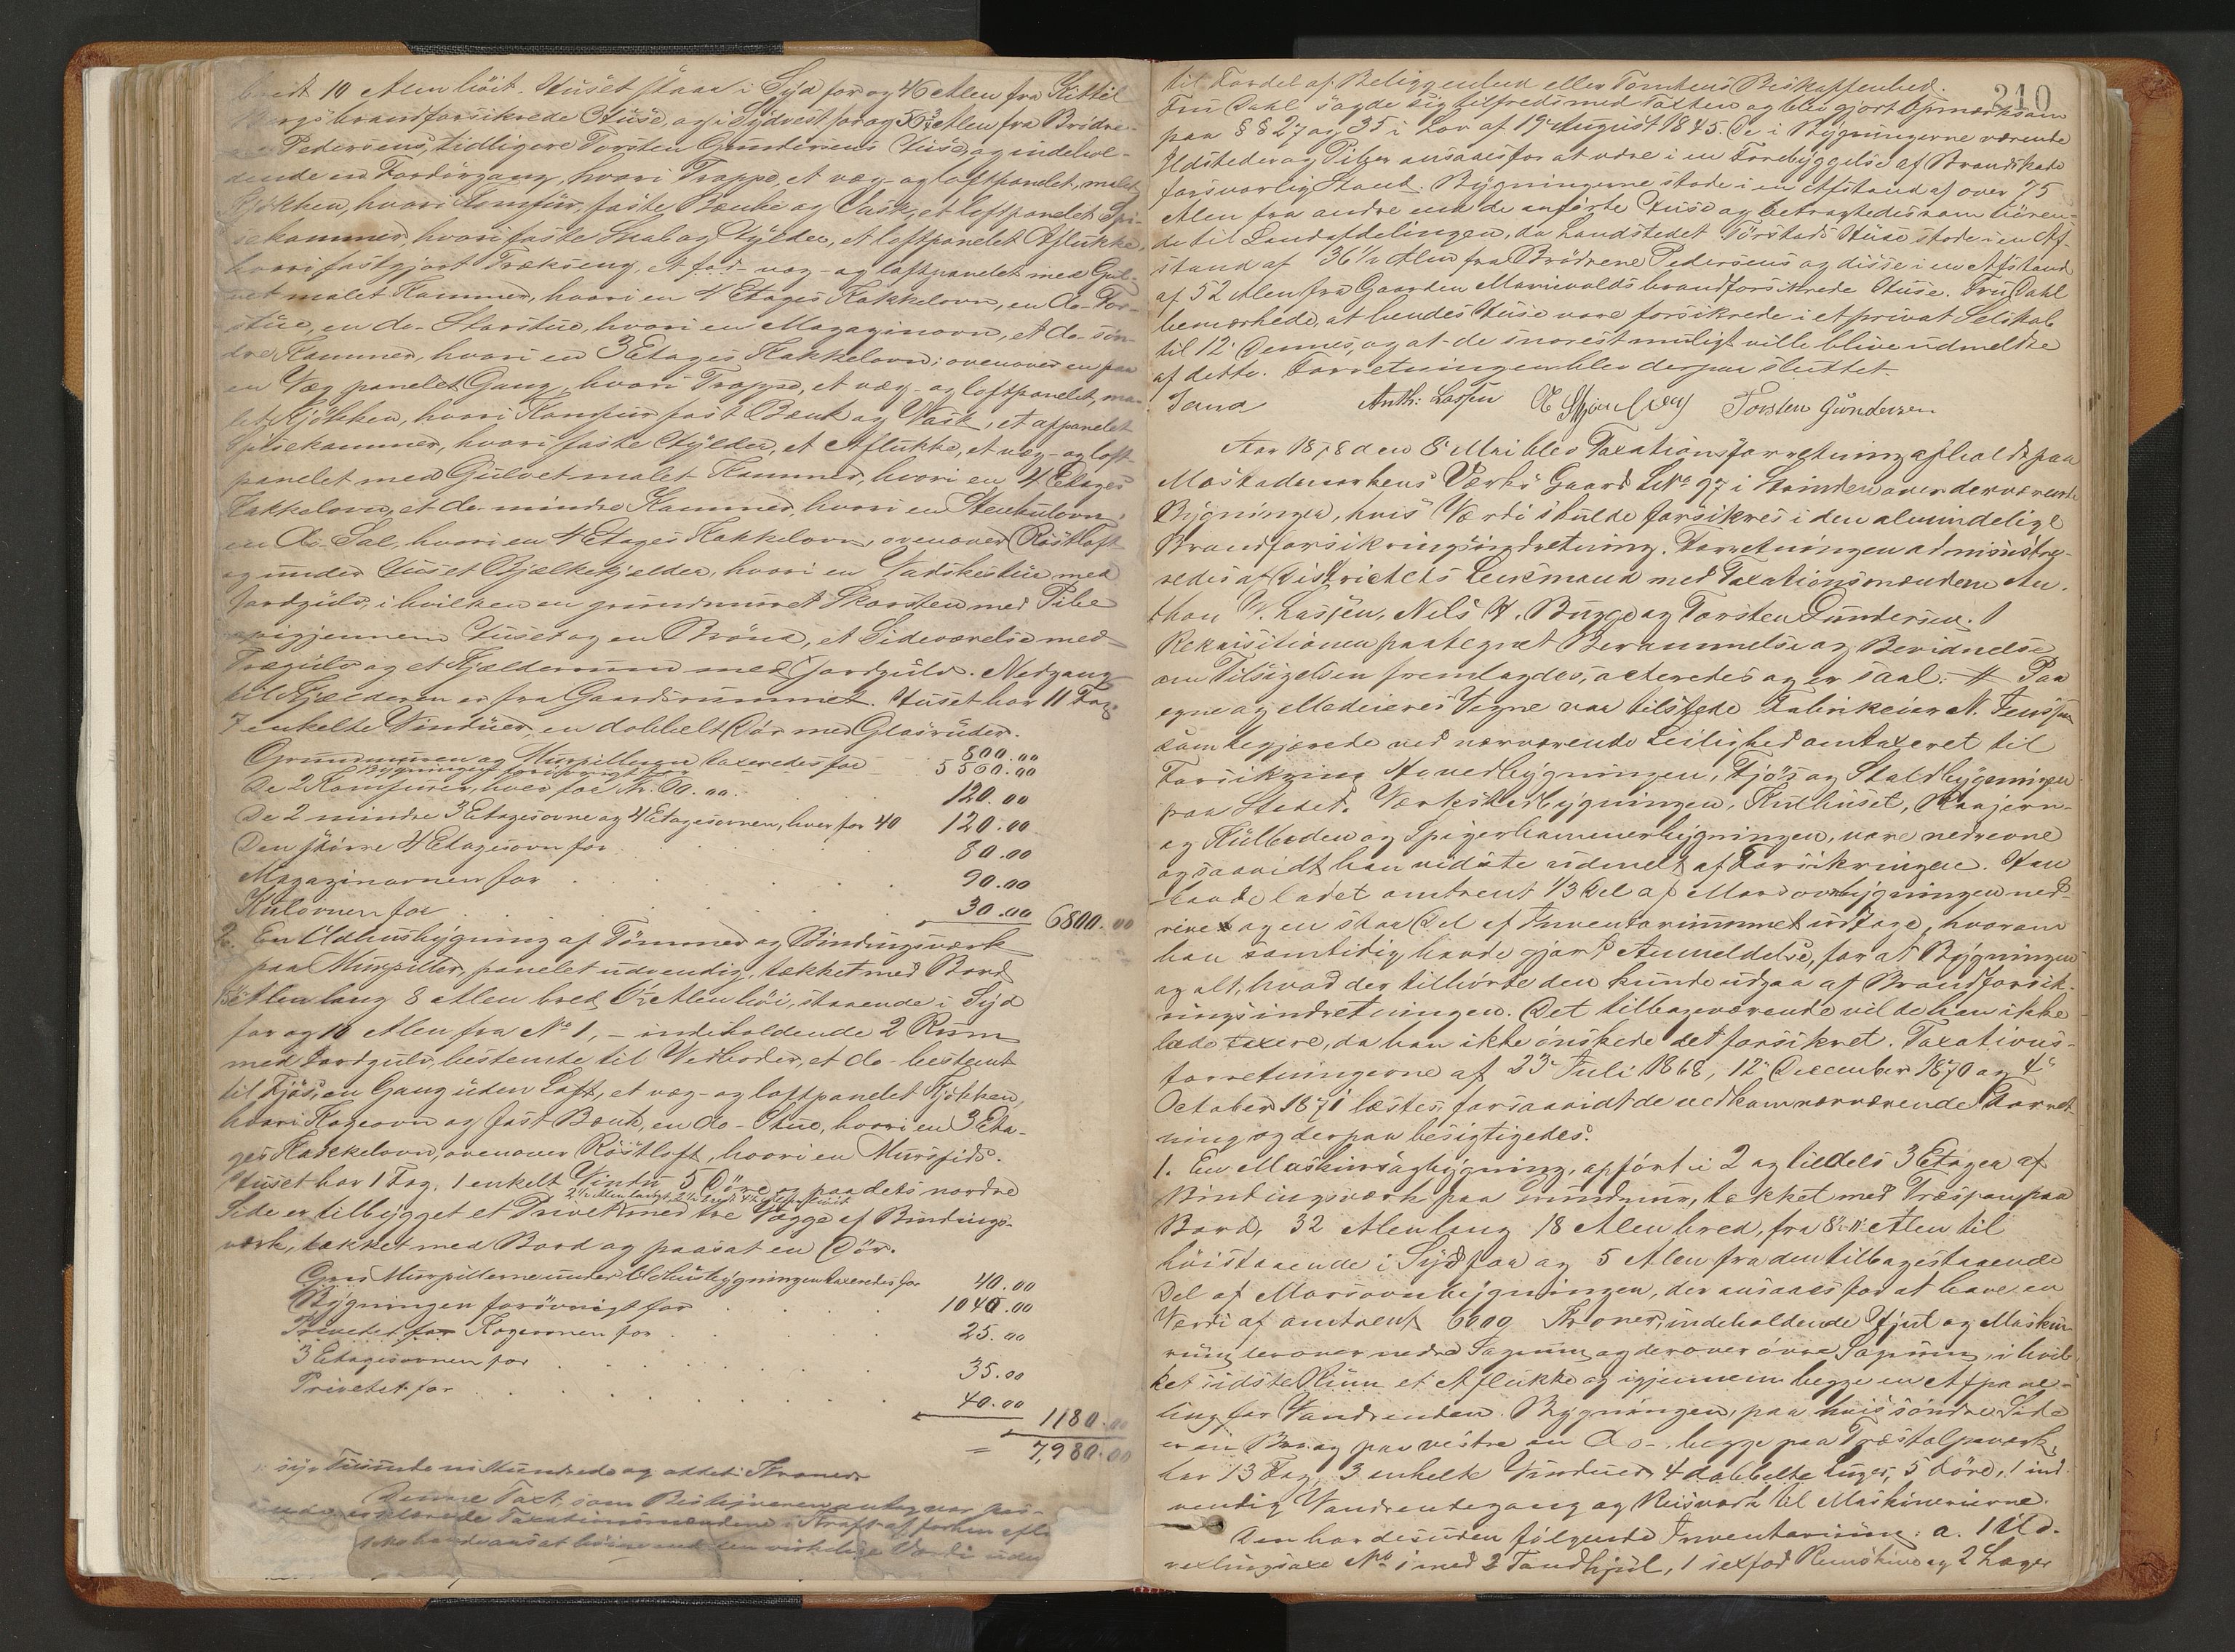 bredt 10 Alen höit. Huset staar i Syd for og 46 Alen fra Kittil
Bergs brandforsikrede Huse, og i Sydvest for og 36½ Alen fra Brödre-
Pedersens, tidligere Torsten Gundersens Huse, og indehol-
dende en Fordörgang, hvori Trappe, et væg- og loftpanelet, malet
Kjökken, hvori Komfur, faste Bænke og Vask, et loftpanelet Spi-
sekammer, hvori faste Skab og Hylder, et loftpanelet Aflukke,
hvori fastgjort Trækseng, et fad- væg- og loftpanelet med Gul-
vet malet Kammer, hvori en 4 Etages Kakkelovn, en do- For-
stue, en do- Storstue, hvori en Magazinovn, et do- sön-
dre Kammer, hvori en 3 Etages Kakkelovn; ovenover en paa
en Væg panelet Gang, hvori Trappe, et væg- og loftpanelet, ma-
let Kjökken, hvori Komfur, fast Bænk og Vask, et afpanelet
Spisekammer, hvori faste Hylder, et Aflukke, et væg- og loft-
panelet med Gulvet malet Kammer, hvori en 4 Etages
Kakkelovn, et do- mindre Kammer, hvori en Stenkulovn,
en do- Sal, hvori en 4 Etages Kakkelovn, ovenover Röstloft
og under Huset Bjælkekjelder, hvori en Vadskestue med
Jordgulv, i hvilken en grundmuret Skorsten med Pibe
opigjennem Huset og en Brönd, et Sideværelse med
Trægulv og et Kjælderrum med Jordgulv. Nedgang
til Kjælderen er fra Gaardsrummet. Huset har 11 Fag
7 enkelte Vinduer, en dobbelt Dör med Glasruder.
Grundmuren og Murpillerne taxeredes for 800.00
Bygningen forövrigt for 5560.00
De 2 Komfurer, hver for Kr. 60.00. 120.00
De 2 mindre 3 Etagesovne og 4 Etagesovnen, hver for 40 120.00
Den större 4 Etagesovn for 80.00
Magazinovnen for 90.00
Kulovnen for 30.00 6800.00
2. En Udhusbygning af Tömmer og Bindingsværk
paa Murpiller, panelet udvendig, tækket med Bord
Alen lang 8 Alen bred, 6½ Alen höi, staaende i Syd
for og 10 Alen fra No 1, - indeholdende 2 Rum
med Jordgulv, bestemte til Vedboder, et do- bestemt
til Fjös, en Gang uden Loft, et væg- og loftpanelet Kjökken,
hvori Kogeovn og fast Bænk, en do- Stue, hvori en 3 Eta-
ges Kakkelovn, ovenover Röstloft, hvori en Murspids.
Huset har 1 Fag, 1 enkelt Vindu 5 Döre og paa dets nordre
Side er tilbygget et Privet med tre Vægge af Bindings-
værk, tækket med Bord og paasat en Dör.
Murpillerne under Udhusbygningen taxeredes for 40.00
Bygningen forövrigt for 1040.00
Privetet for Kogeovnen for 25.00
3 Etagesovnen for 35.00
Privetet for 40.00
1180.00
= 7,980.00
syv Tusinde ni Hundrede og otteti Kroner
Denne Taxt, som Bestyreren antog var pas-
sende, erklærede Taxationsmændene i Kraft af forhen afl.
ikke havde ansat höiere end den virkelige Værdi uden
210
til Fordel af Beliggenhed eller Tomtens Beskaffenhed.
Fru Dahl sagde sig tilfreds med Taxten og blev gjort opmærksom
paa §§ 27 og 35 i Lov af 19 August 1845. De i Bygningerne værende
Ildsteder og Piber ansaaes for at være i en Forebyggelse af Brandskade
forsvarlig Stand. Bygningerne stode i en Afstand af over 75
Alen fra andre end de anförte Huse og betragtedes som hören-
de til Landafdelingen, da Landstedet Törstads Huse stode i en Af-
stand af 36½ Alen fra Brödrene Pedersens og disse i en Afstand
af 52 Alen fra Gaarden Marievolds brandforsikrede Huse. Fru Dahl
bemærkede, at hendes Huse vare forsikrede i et privat Selskab
til 12 dennes, og at de snarest muligt ville blive udmeldte
af dette. Forretningen blev derpaa sluttet.
Tand Anth: Lassen Torsten Gundersen
Aar 1878 den 8 Mai blev Taxationsforretning afholdt paa
Mostadmarkens Værks Gaard LNo 97 i Strinden over derværende
Bygninger, hvis Værdi skulde forsikres i den almindelige
Brandforsikringsindretning. Forretningen administre-
redes af Districtets Lensmand med Taxationsmændene An-
thon W. Lassen, Nils H. Bugge og Torsten Gundersen.
Rekvisitionen paategnet Berammelse og Bevidnelse
om Tilsigelsen fremlagdes, acteredes og er saal: # Paa
egne og Medeieres Vegne var tilstede Fabrikeier N. Jenssen
som begjærede ved nærværende Leilighed omtaxeret til
Forsikring Hovedbygningen, Fjös og Staldbygningen
paa Stedet. Værkstedbygningen, Kulhuset, Raajern-
og Kulboden og Spigerhammerbygningen, vare nedrevne
og saavidt han vidste udmeldt af Forsikringen. Han
havde ladet omtrent 1/3 Del af Masovnbygningen ned-
rive og en stor Del af Inventariummet udtage, hvorom
han samtidig havde gjort Anmeldelse, for at Bygningen
og alt, hvad der tilhörte den kunde udgaa af Brandforsik-
ringsindretningen. Det tilbageværende vilde han ikke
lade taxere, da han ikke önskede det forsikret. Taxations-
forretningerne af 23 Juli 1868, 12 December 1870 og 4
October 1871 læstes, forsaavidt de vedkom nærværende Forret-
ning og derpaa besigtigedes:
1. En Maskinsagbygning, opfört i 2 og tildels 3 Etager af
Bindingsværk paa Grundmur, tækket med Træspaan paa
Bord, 32 Alen lang 18 Alen bred, fra 8½-11 Alen til
höi staaende i Syd for og 5 Alen fra den tilbagestaaende
Del af Masovnbygningen, der ansaaes for at have en
Værdi af omtrent 6000 Kroner, indeholdende Hjul og Maskin-
rum derover nedre Sagrum og derover övre Sagrum, i hvil-
ket sidste Rum et Aflukke og igjennem begge en Afpane-
ling for Vandrenden. Bygningen, paa hvis söndre Side
er en Bro og paa vestre en do-, begge paa Træstolpeværk,
har 13 Fag, 3 enkelte Vinduer, 4 dobbelte Luger, 5 Döre, 1 ind-
vendig Vandrendegang og Reisværk til Maskinerierne.
Den har desuden fölgende Inventarium: a. 1 Ud-
vexlingsaxe No 1 med 2 Tandhjul, 1 sexfod Remskive og 2 Lager